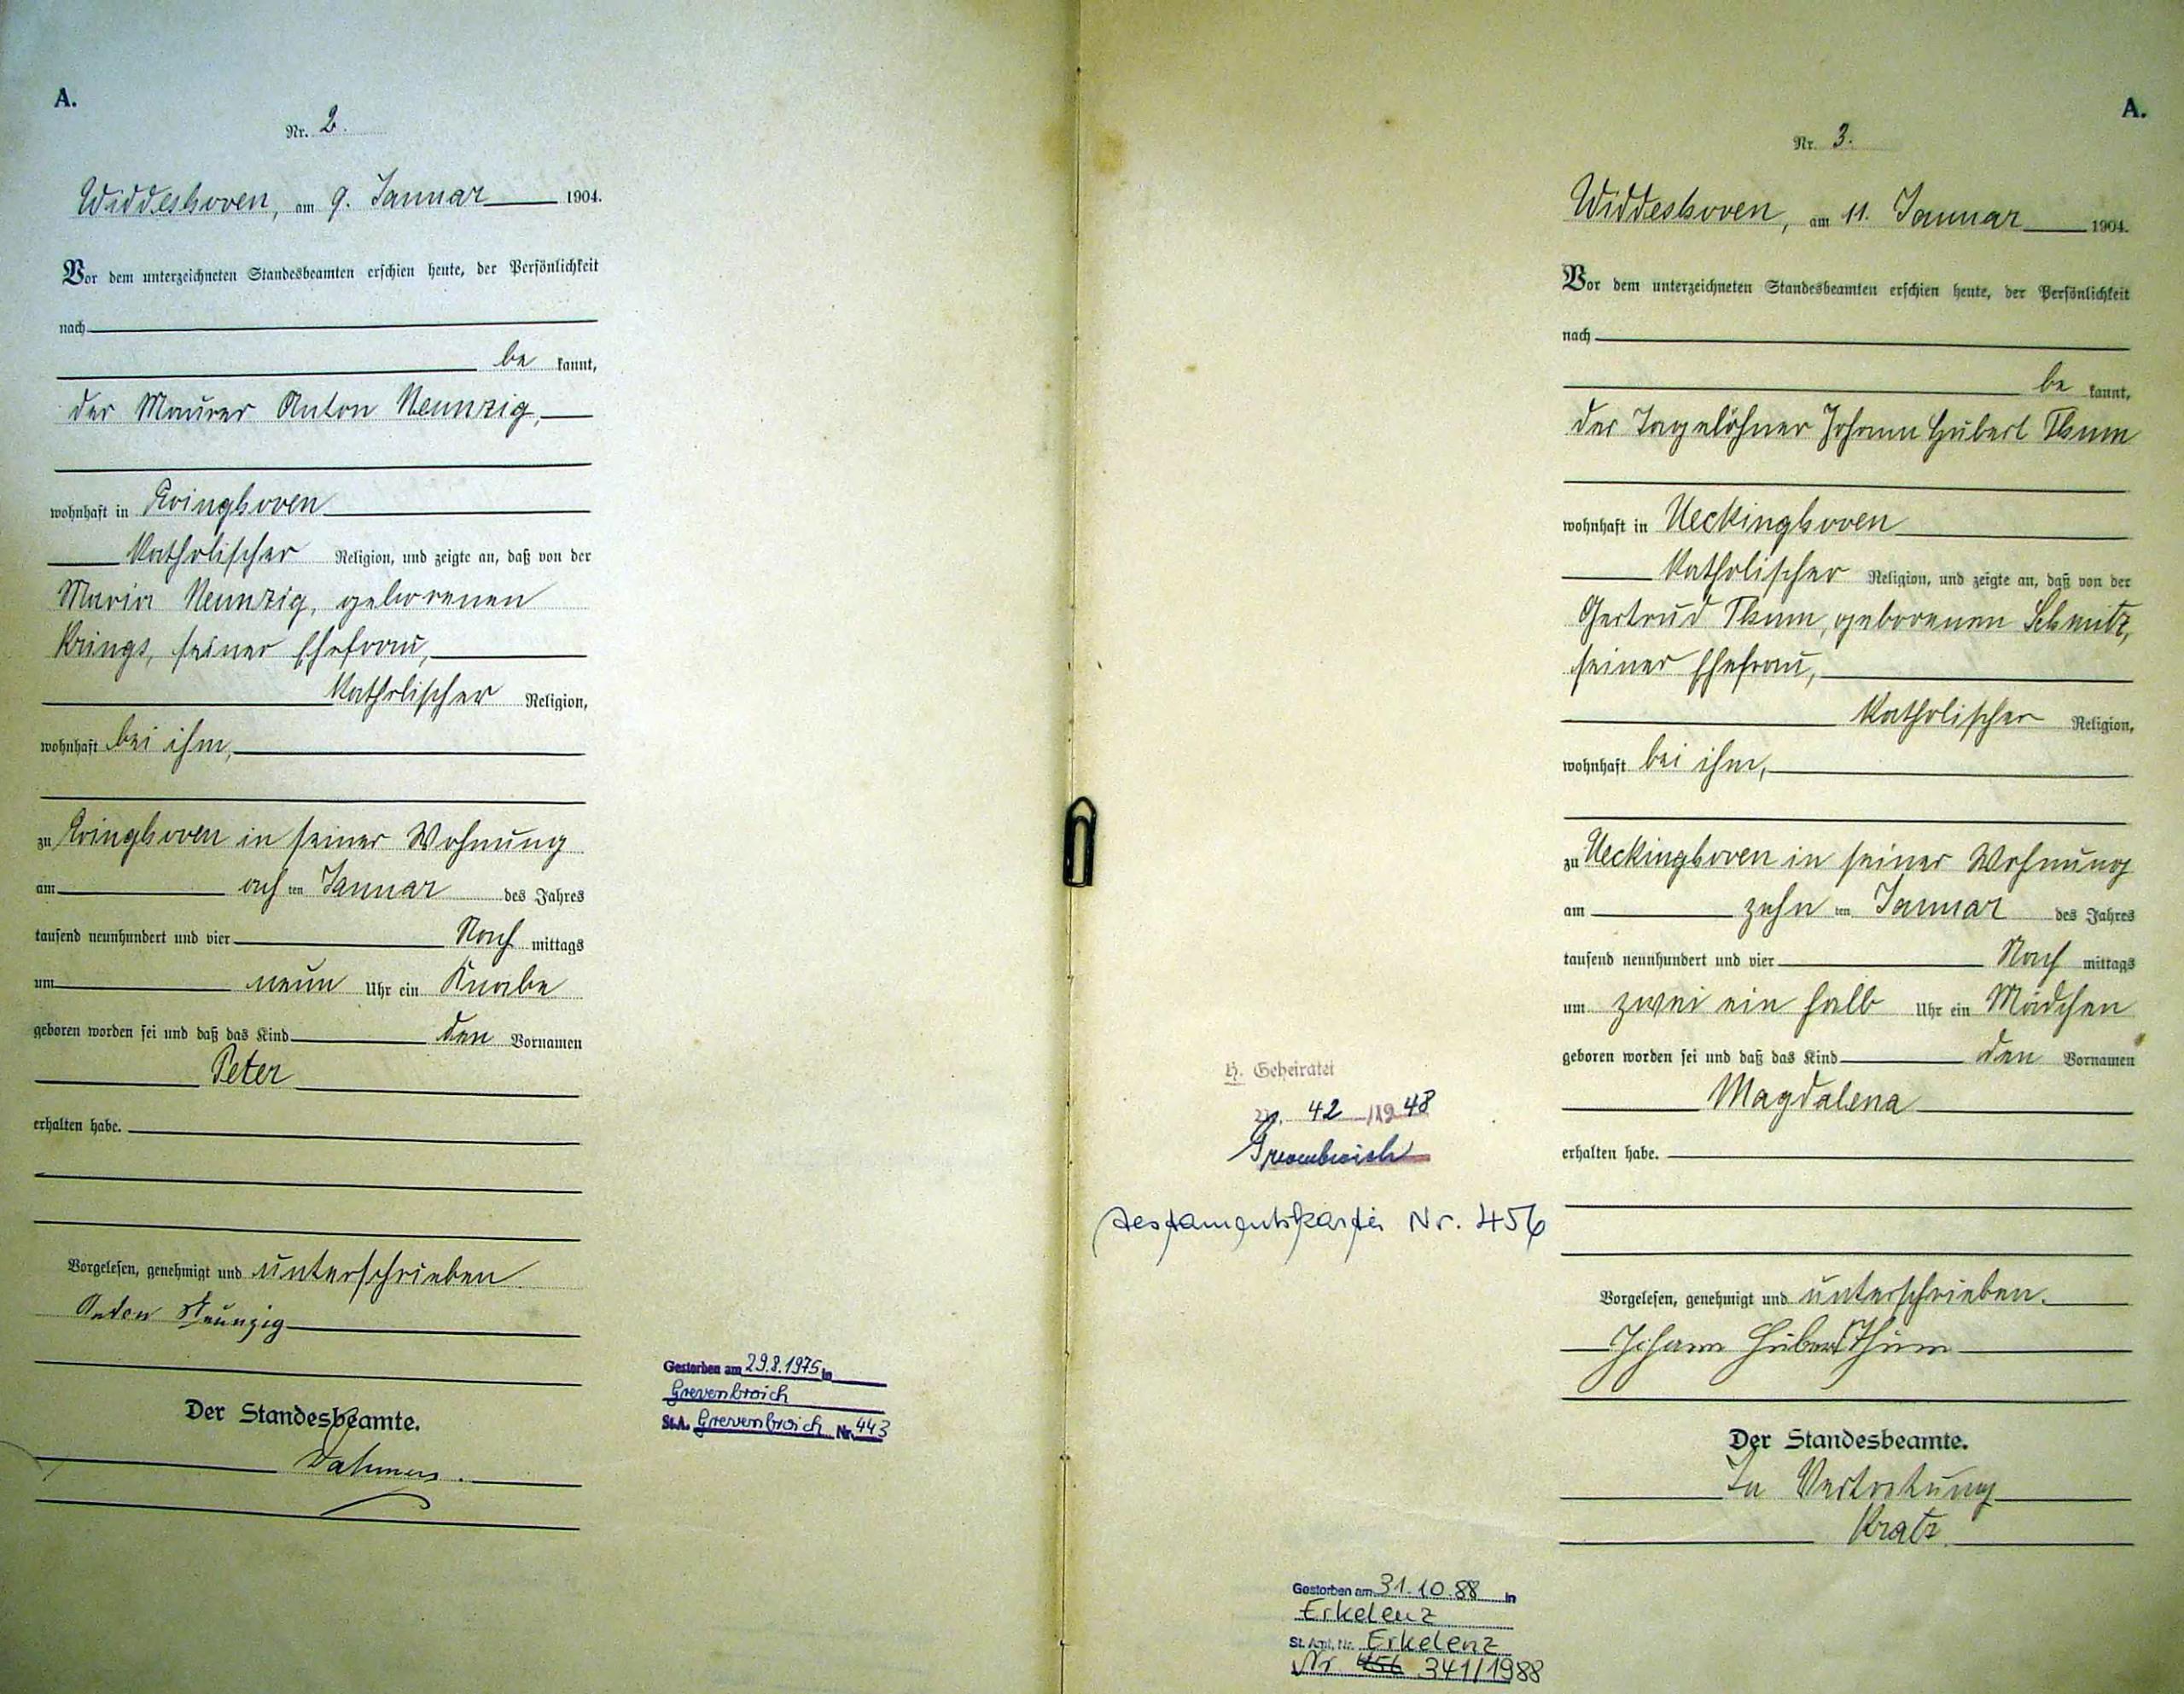 A.
Nr. 2.
Widdeshoven, am 9. Januar 1904.
Vor dem unterzeichneten Standesbeamten erschien heute, der Persönlichkeit
nach
be kannt,
der Maurer Anton Neunzig,
wohnhaft in Evinghoven
katholischer Religion, und zeigte an, daß von der
Maria Neunzig, geborenen
Krings, seiner Ehefrau,
katholischer Religion,
wohnhaft bei ihm,
zu Evinghoven in seiner Wohnung
am ach ten Januar des Jahres
tausend neunhundert und vier Nach mittags
um neun Uhr ein Knabe
geboren worden sei und daß das Kind den Vornamen
Peter
erhalten habe.
Vorgelesen, genehmigt und unterschrieben
Anton Neunzig
Der Standesbeamte.
Dahmen.
Gestorben am 29.8.1975 in
Grevenbroich
St.A. Grevenbroich Nr. 443
A.
Nr. 3.
Widdeshoven, am 11. Januar 1904.
Vor dem unterzeichneten Standesbeamten erschien heute, der Persönlichkeit
nach
be kannt,
der Tagelöhner Johann Hubert Thum
wohnhaft in Ueckinghoven
katholischer Religion, und zeigte an, daß von der
Gertrud Thum, geborenen Schmitz,
seiner Ehefrau,
katholischer Religion,
wohnhaft bei ihm,
zu Ueckinghoven in seiner Wohnung
am zehn ten Januar des Jahres
tausend neunhundert und vier Nach mittags
um zwei ein halb Uhr ein Mädchen
geboren worden sei und daß das Kind den Vornamen
Magdalena
erhalten habe.
Vorgelesen, genehmigt und unterschrieben.
Johann Hubert Thum
Der Standesbeamte.
In Vertretung
Kratz.
H. Geheiratet
Nr. 42 /1948
Grevenbroich
Testamentskartei Nr. 456
Gestorben am 31.10.88 in
Erkelenz
St.Amt, Nr. Erkelenz
Nr 456 341/1988